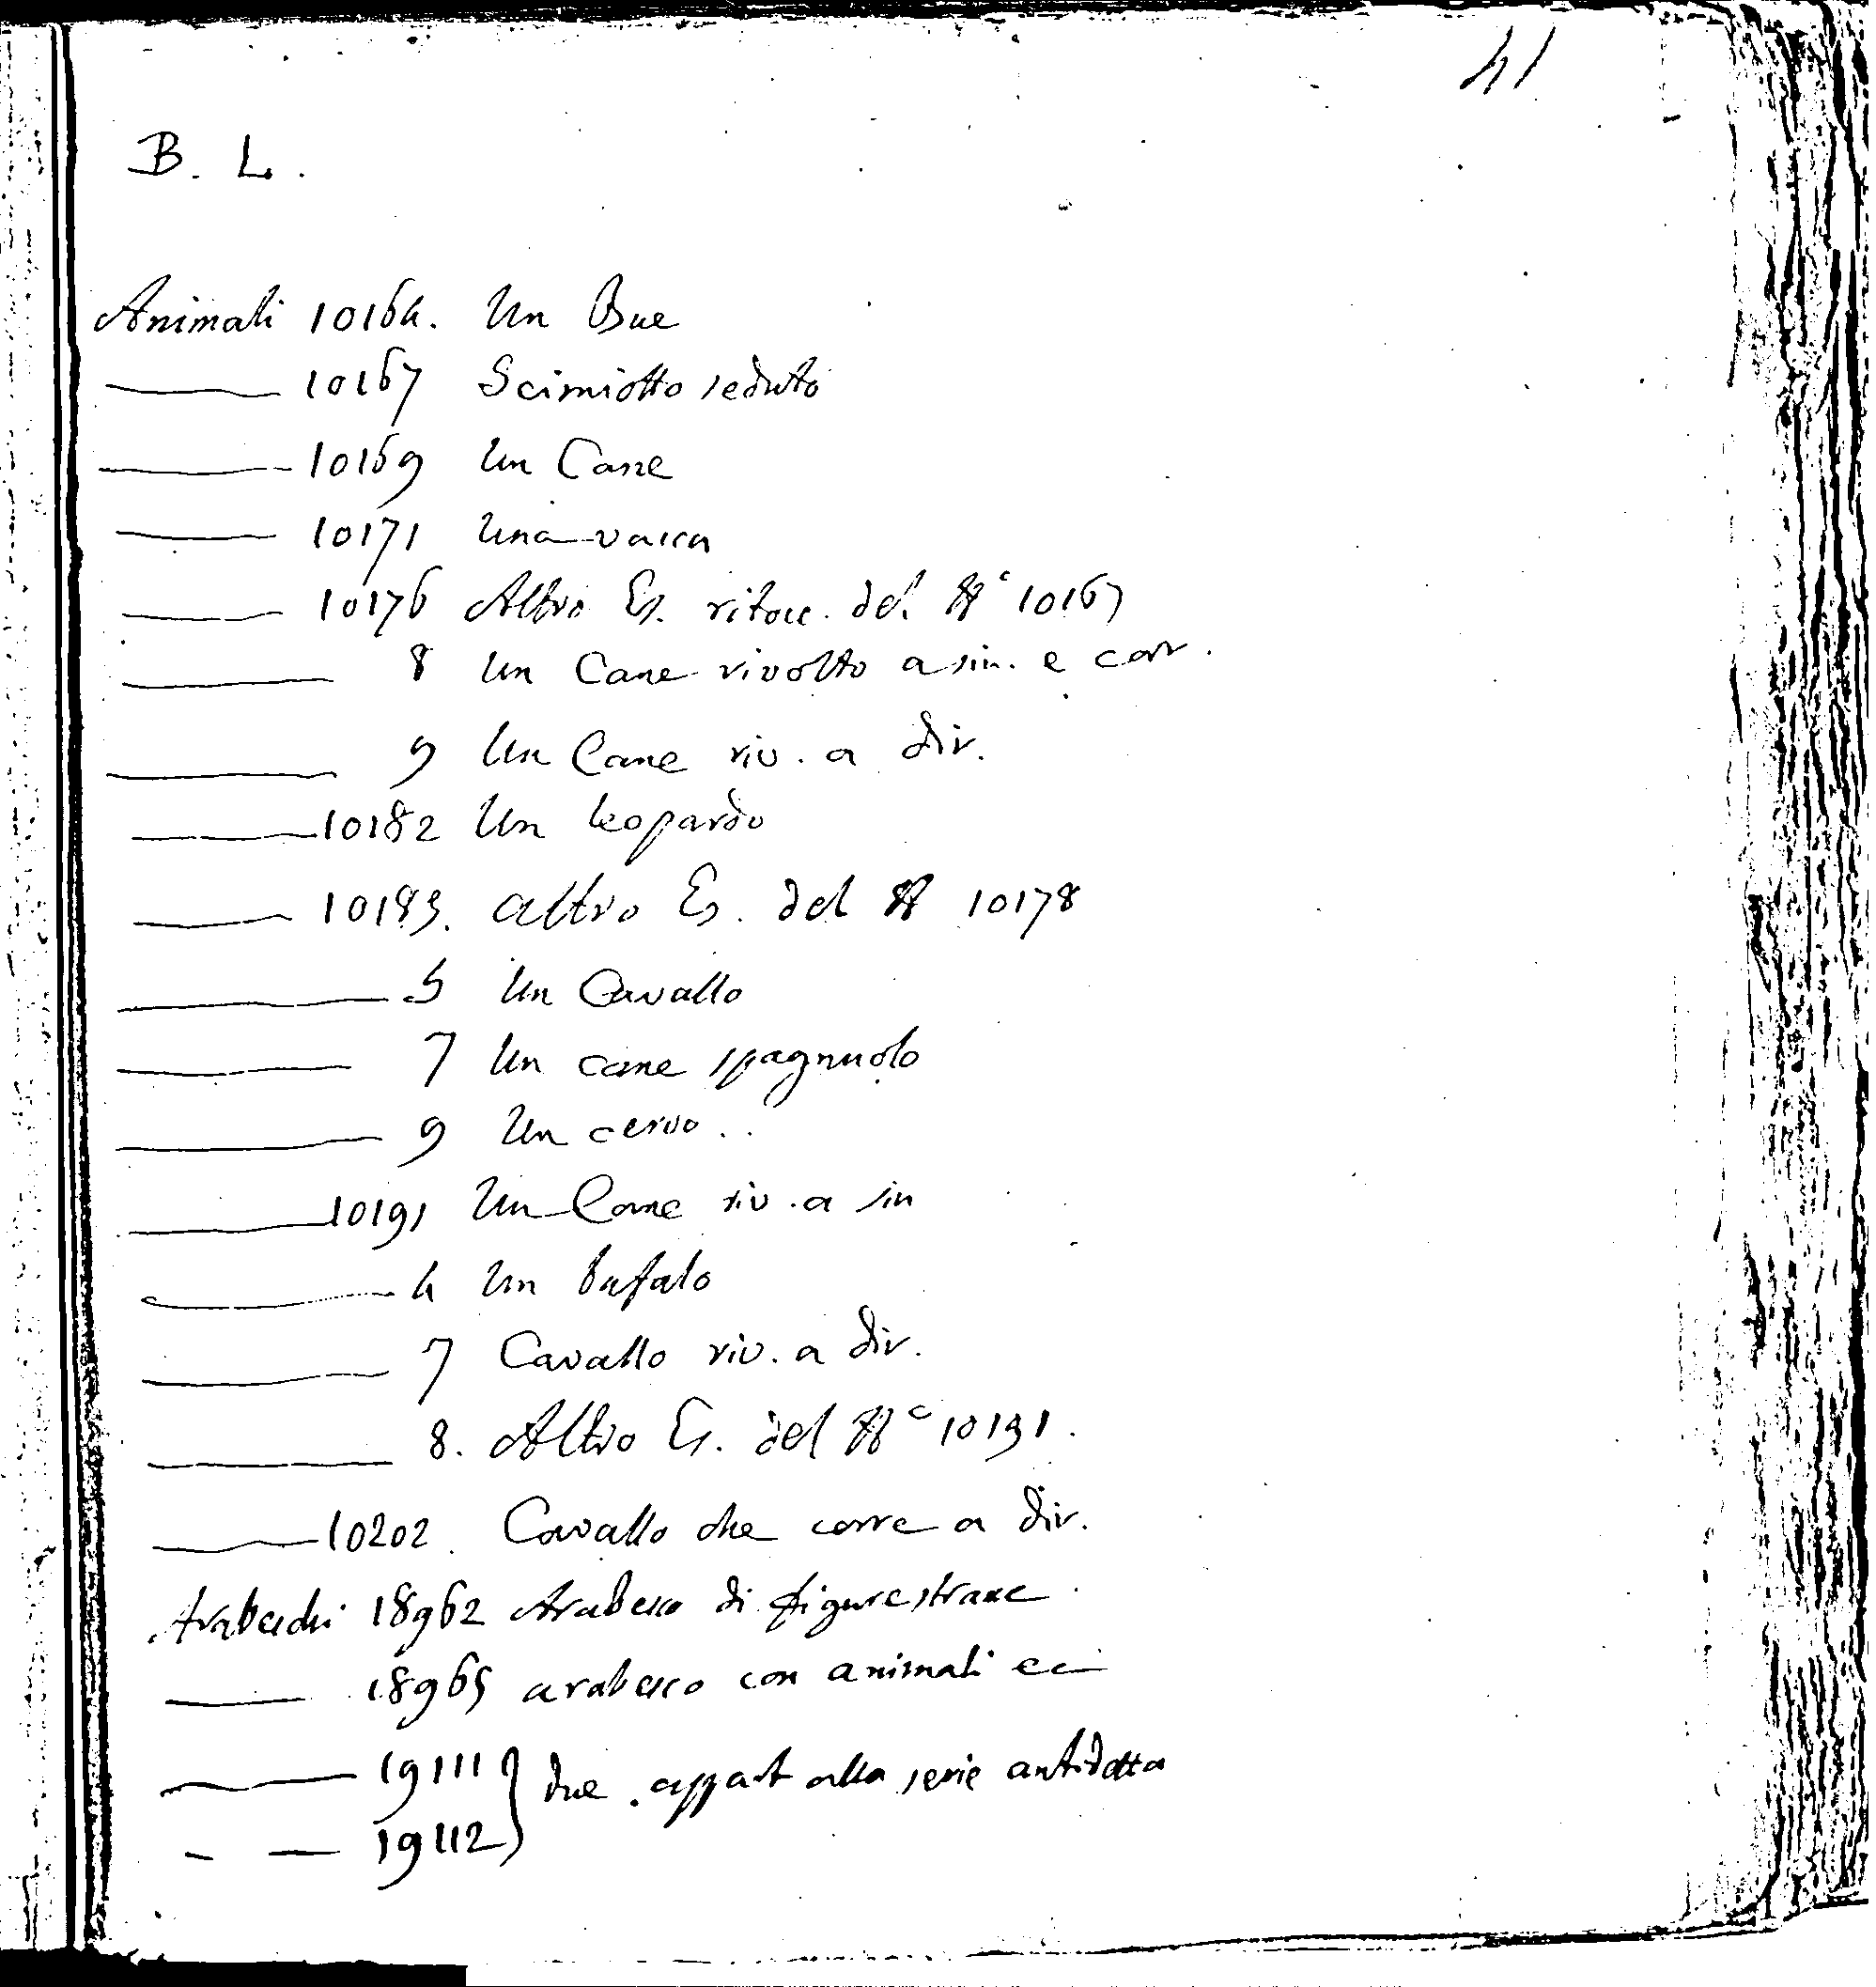 41
B. L.
Animali 10164. Un Bue
——— 10167 Scimiotto seduto
——— 10169 Un Cane
——— 10171 Una vacca
——— 10176 Altro Es. ritocc. del N° 10167
——— 8 Un Cane rivolto a sin. e corr.
——— 9 Un Cane riv. a dir.
——— 10182 Un leopardo
——— 10183. altro Es. del N 10178
——— 5 Un Cavallo
——— 7 Un cane spagnuolo
——— 9 Un cervo..
——— 10191 Un Cane riv. a sin
——— 4 Un bufalo
——— 7 Cavallo riv. a dir.
——— 8. Altro Es. del N° 10191.
——— 10202. Cavallo che corre a dir.
Arabeschi 18962 Arabesco di figure strane
——— 18965 arabesco con animali ec
——— 19111 } due appart alla serie antidetta
— — 19112 }